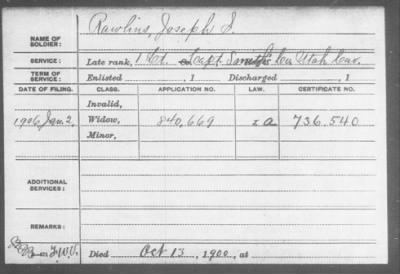 NAME OF SOLDIER: Rawlins, Joseph S.
SERVICE: Late rank, 1 Lt. Capt. Smith's Co. Utah Cav.
TERM OF SERVICE: Enlisted , 1 Discharged , 1
DATE OF FILING. CLASS. APPLICATION NO. LAW. CERTIFICATE NO.
Invalid,
1906 Jan. 2, Widow, 840,669 736.540
Minor,
ADDITIONAL SERVICES:
REMARKS:
Died Oct 13, 1900, at